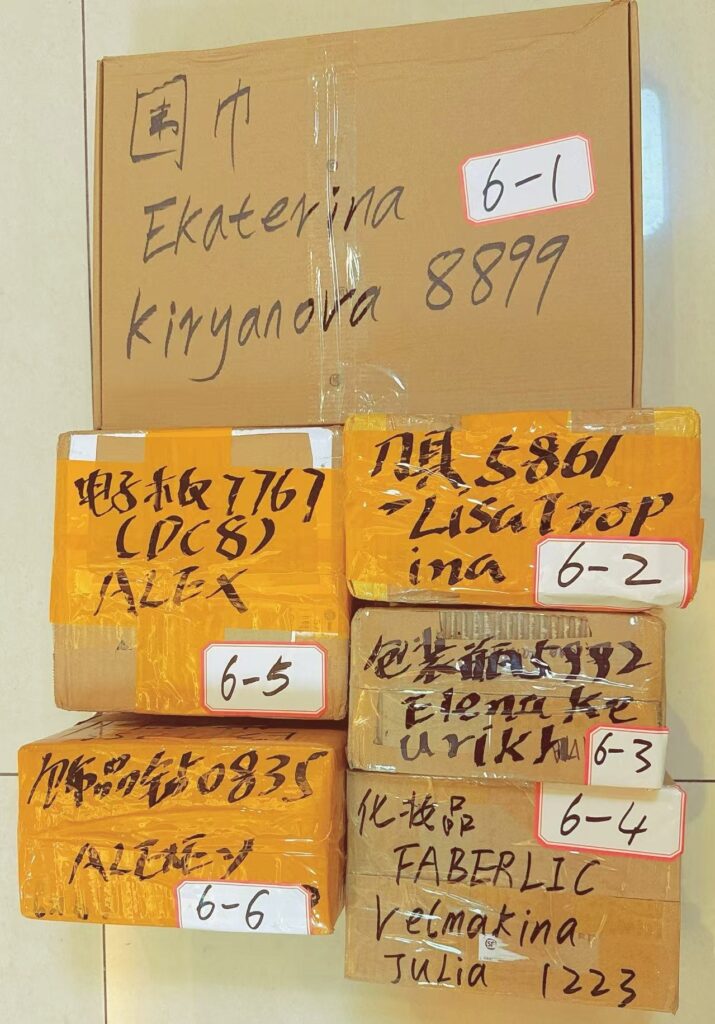 围巾
6-1
Ekaterina
Kiryanova 8899
电子板7767
(DC8)
ALEX
6-5
刀具5861
-Lisa Trop
ina
6-2
包装瓶
Elena Ke
6-3
饰品钻0835
6-6
化妆品
6-4
FABERLIC
Velmakina
Julia 1223